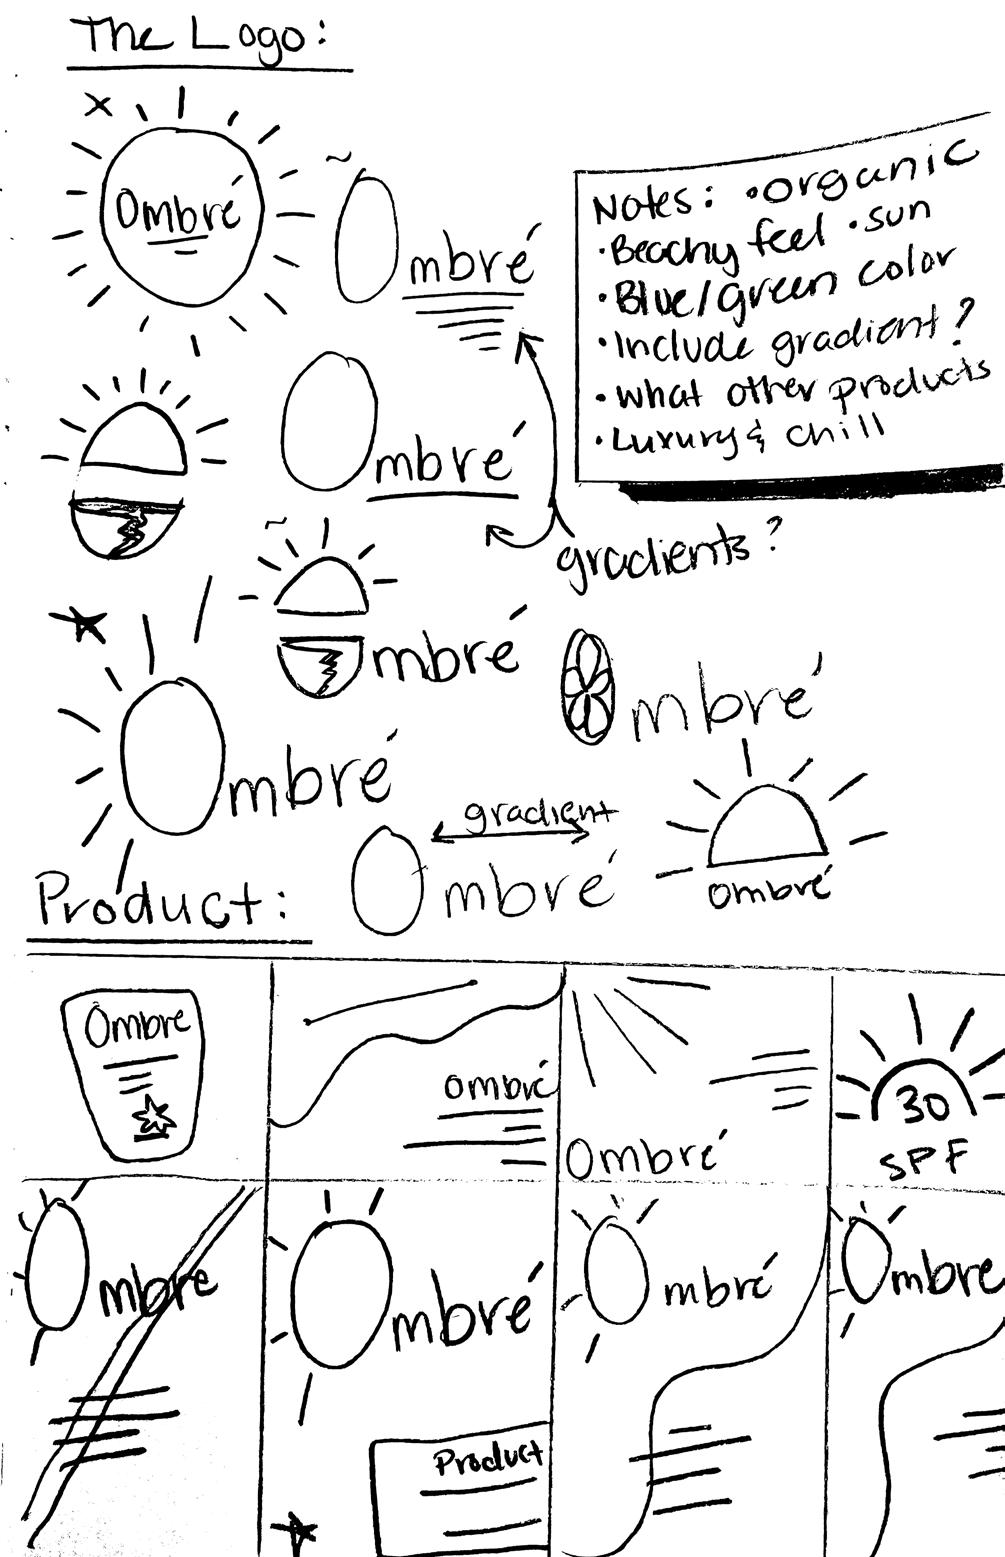 The Logo:
x
Ombré
~
Ombré
Notes: • organic
• Beachy feel • sun
• Blue/green color
• Include gradient?
• what other products
• Luxury & chill
Ombré
gradients?
~
mbré
Ombré
mbré
gradient
Ombré
Ombré
Product:
Ombre
Ombré
Ombré
30
SPF
Ombre
Ombré
Product
Ombré
Ombre